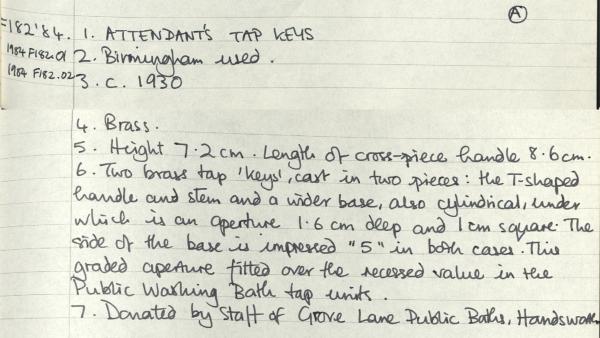 A
F182'84. 1. ATTENDANT'S TAP KEYS
1984 F182.01 2. Birmingham used.
1984 F182.02 3. c. 1930
4. Brass.
5. Height 7.2cm. Length of cross-piece handle 8.6cm.
6. Two brass tap 'keys', cast in two pieces: the T-shaped
handle and stem and a wider base, also cylindrical, under
which is an aperture 1.6cm deep and 1cm square. The
side of the base is impressed "5" in both cases. This
graded aperture fitted over the recessed value in the
Public Washing Bath tap units.
7. Donated by staff of Grove Lane Public Baths, Handsworth.